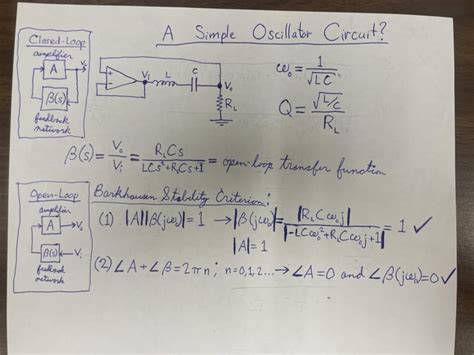 A Simple Oscillator Circuit?
Closed-Loop
amplifier
A
V₀
β(s)
feedback
network
Vi
L
C
V₀
R_L
ω₀ = 1/√LC
Q = √(L/C)/R_L
β(s) = V₀/Vi = R_L C s/(LCs²+R_L Cs+1) = open-loop transfer function
Open-Loop
amplifier
A
V₀
β(s)
Vi
feedback
network
Barkhausen Stability Criterion:
(1) |A||β(jω₀)| = 1 → |β(jω₀)| = |R_L Cω₀j|/|-LCω₀²+R_L Cω₀j+1| = 1 ✓
|A| = 1
(2) ∠A + ∠β = 2πn ; n=0,1,2... → ∠A = 0 and ∠β(jω₀) = 0 ✓